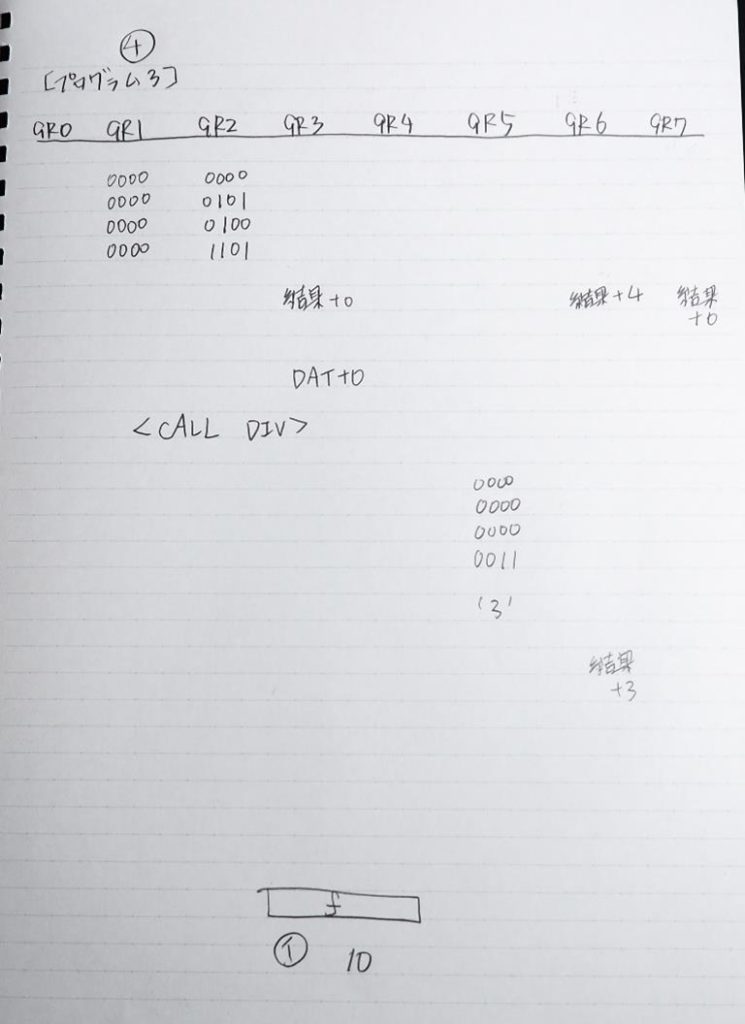 ④
[プログラム3]
GR0 GR1 GR2 GR3 GR4 GR5 GR6 GR7
0000 0000
0000 0101
0000 0100
0000 1101
結果+0 結果+4 結果
+0
DAT+0
<CALL DIV>
0000
0000
0000
0011
'3'
結果
+3
f
① 10